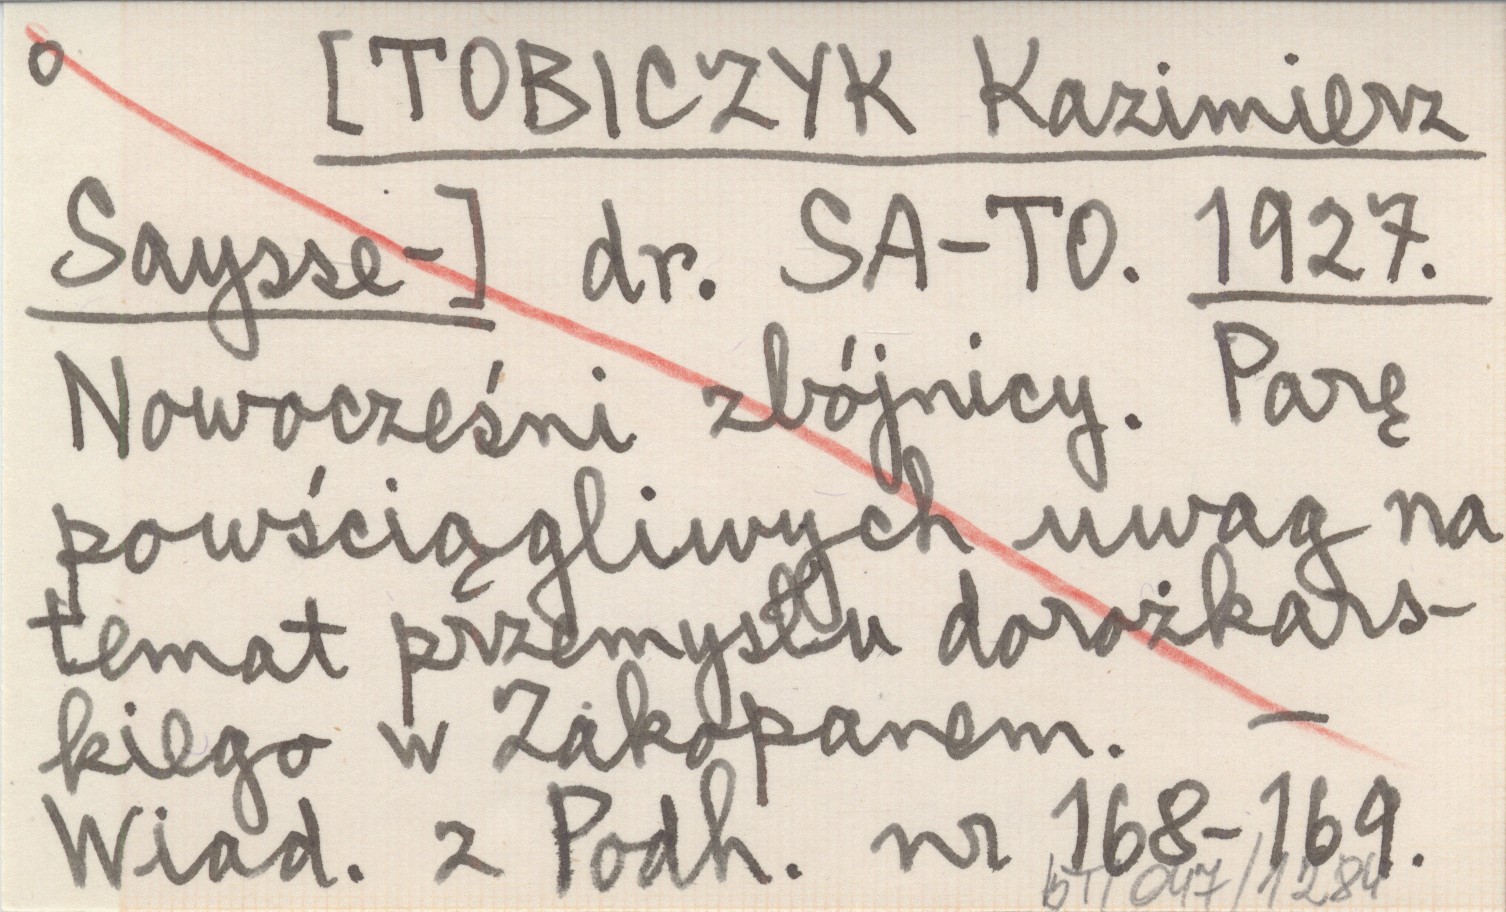 o [TOBICZYK Kazimierz
Saysse-] dr. SA-TO. 1927.
Nowocześni zbójnicy. Parę
powściągliwych uwag na
temat przemysłu dorożkars-
kiego w Zakopanem. —
Wiad. z Podh. nr 168-169.
bT/047/1284